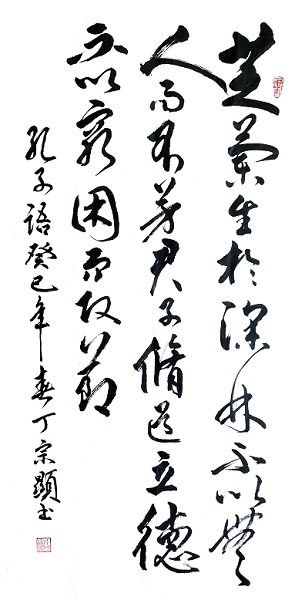 芝蘭生於深林不以無
人而不芳君子脩道立德
不以窮困而改節
孔子語癸巳年春丁宗顯书